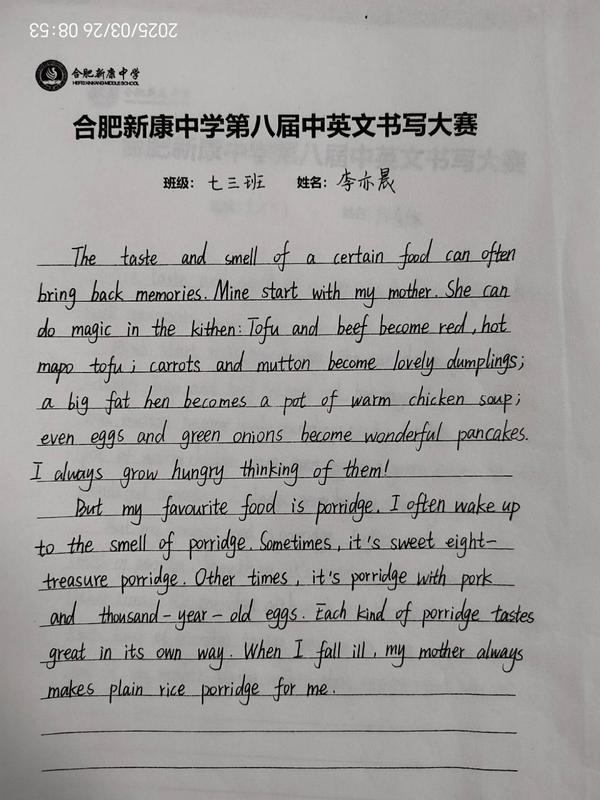 2025/03/26 08:53
合肥新康中学
HEFEI XINKANG MIDDLE SCHOOL
合肥新康中学第八届中英文书写大赛
班级: 七三班 姓名: 李亦晟
The taste and smell of a certain food can often
bring back memories. Mine start with my mother. She can
do magic in the kithen: Tofu and beef become red, hot
mapo tofu; carrots and mutton become lovely dumplings;
a big fat hen becomes a pot of warm chicken soup;
even eggs and green onions become wonderful pancakes.
I always grow hungry thinking of them!
But my favourite food is porridge. I often wake up
to the smell of porridge. Sometimes, it's sweet eight-
treasure porridge. Other times, it's porridge with pork
and thousand-year-old eggs. Each kind of porridge tastes
great in its own way. When I fall ill, my mother always
makes plain rice porridge for me.